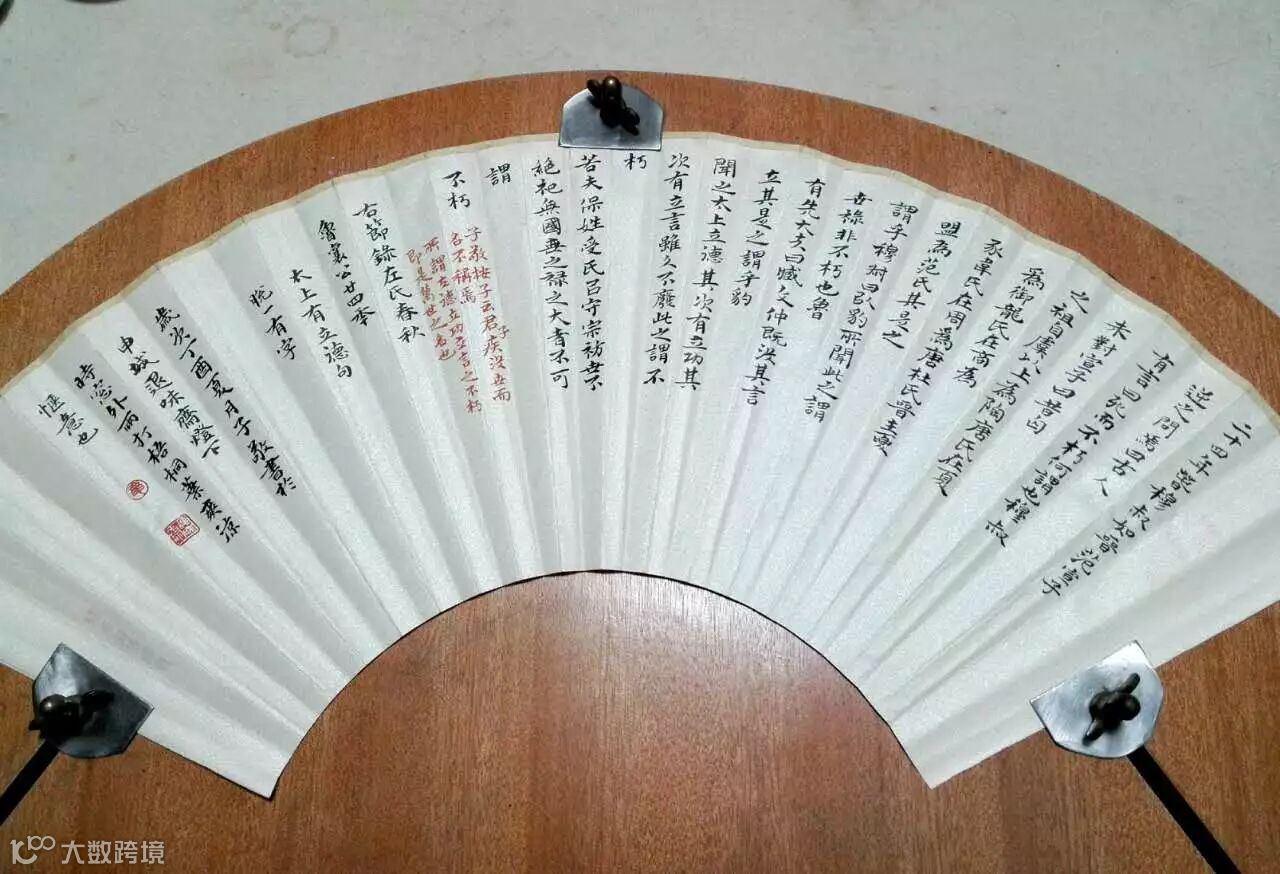 二十四年春穆叔如晉范宣子
逆之問焉曰古人
有言曰死而不朽何謂也穆叔
未對宣子曰昔匄
之祖自虞以上為陶唐氏在夏
為御龍氏在商為
豕韋氏在周為唐杜氏晉主夏
盟為范氏其是之
謂乎穆叔曰以豹所聞此之謂
世祿非不朽也魯
有先大夫曰臧文仲既沒其言
立其是之謂乎豹
聞之太上立德其次有立功其
次有立言雖久不廢此之謂不
朽
若夫保姓受氏以守宗祊世不
絕祀無國無之祿之大者不可
謂
不朽
子敬按子云君子疾沒世而
名不稱焉
所謂立德立功立言之不朽
即是萬世之名也
右節錄左氏春秋
魯襄公廿四年
太上有立德句
脫一有字
歲次丁酉夏月子敬書於
申城退味齋燈下
時窓外雨打梧桐葉爽涼
愜意也
大数跨境